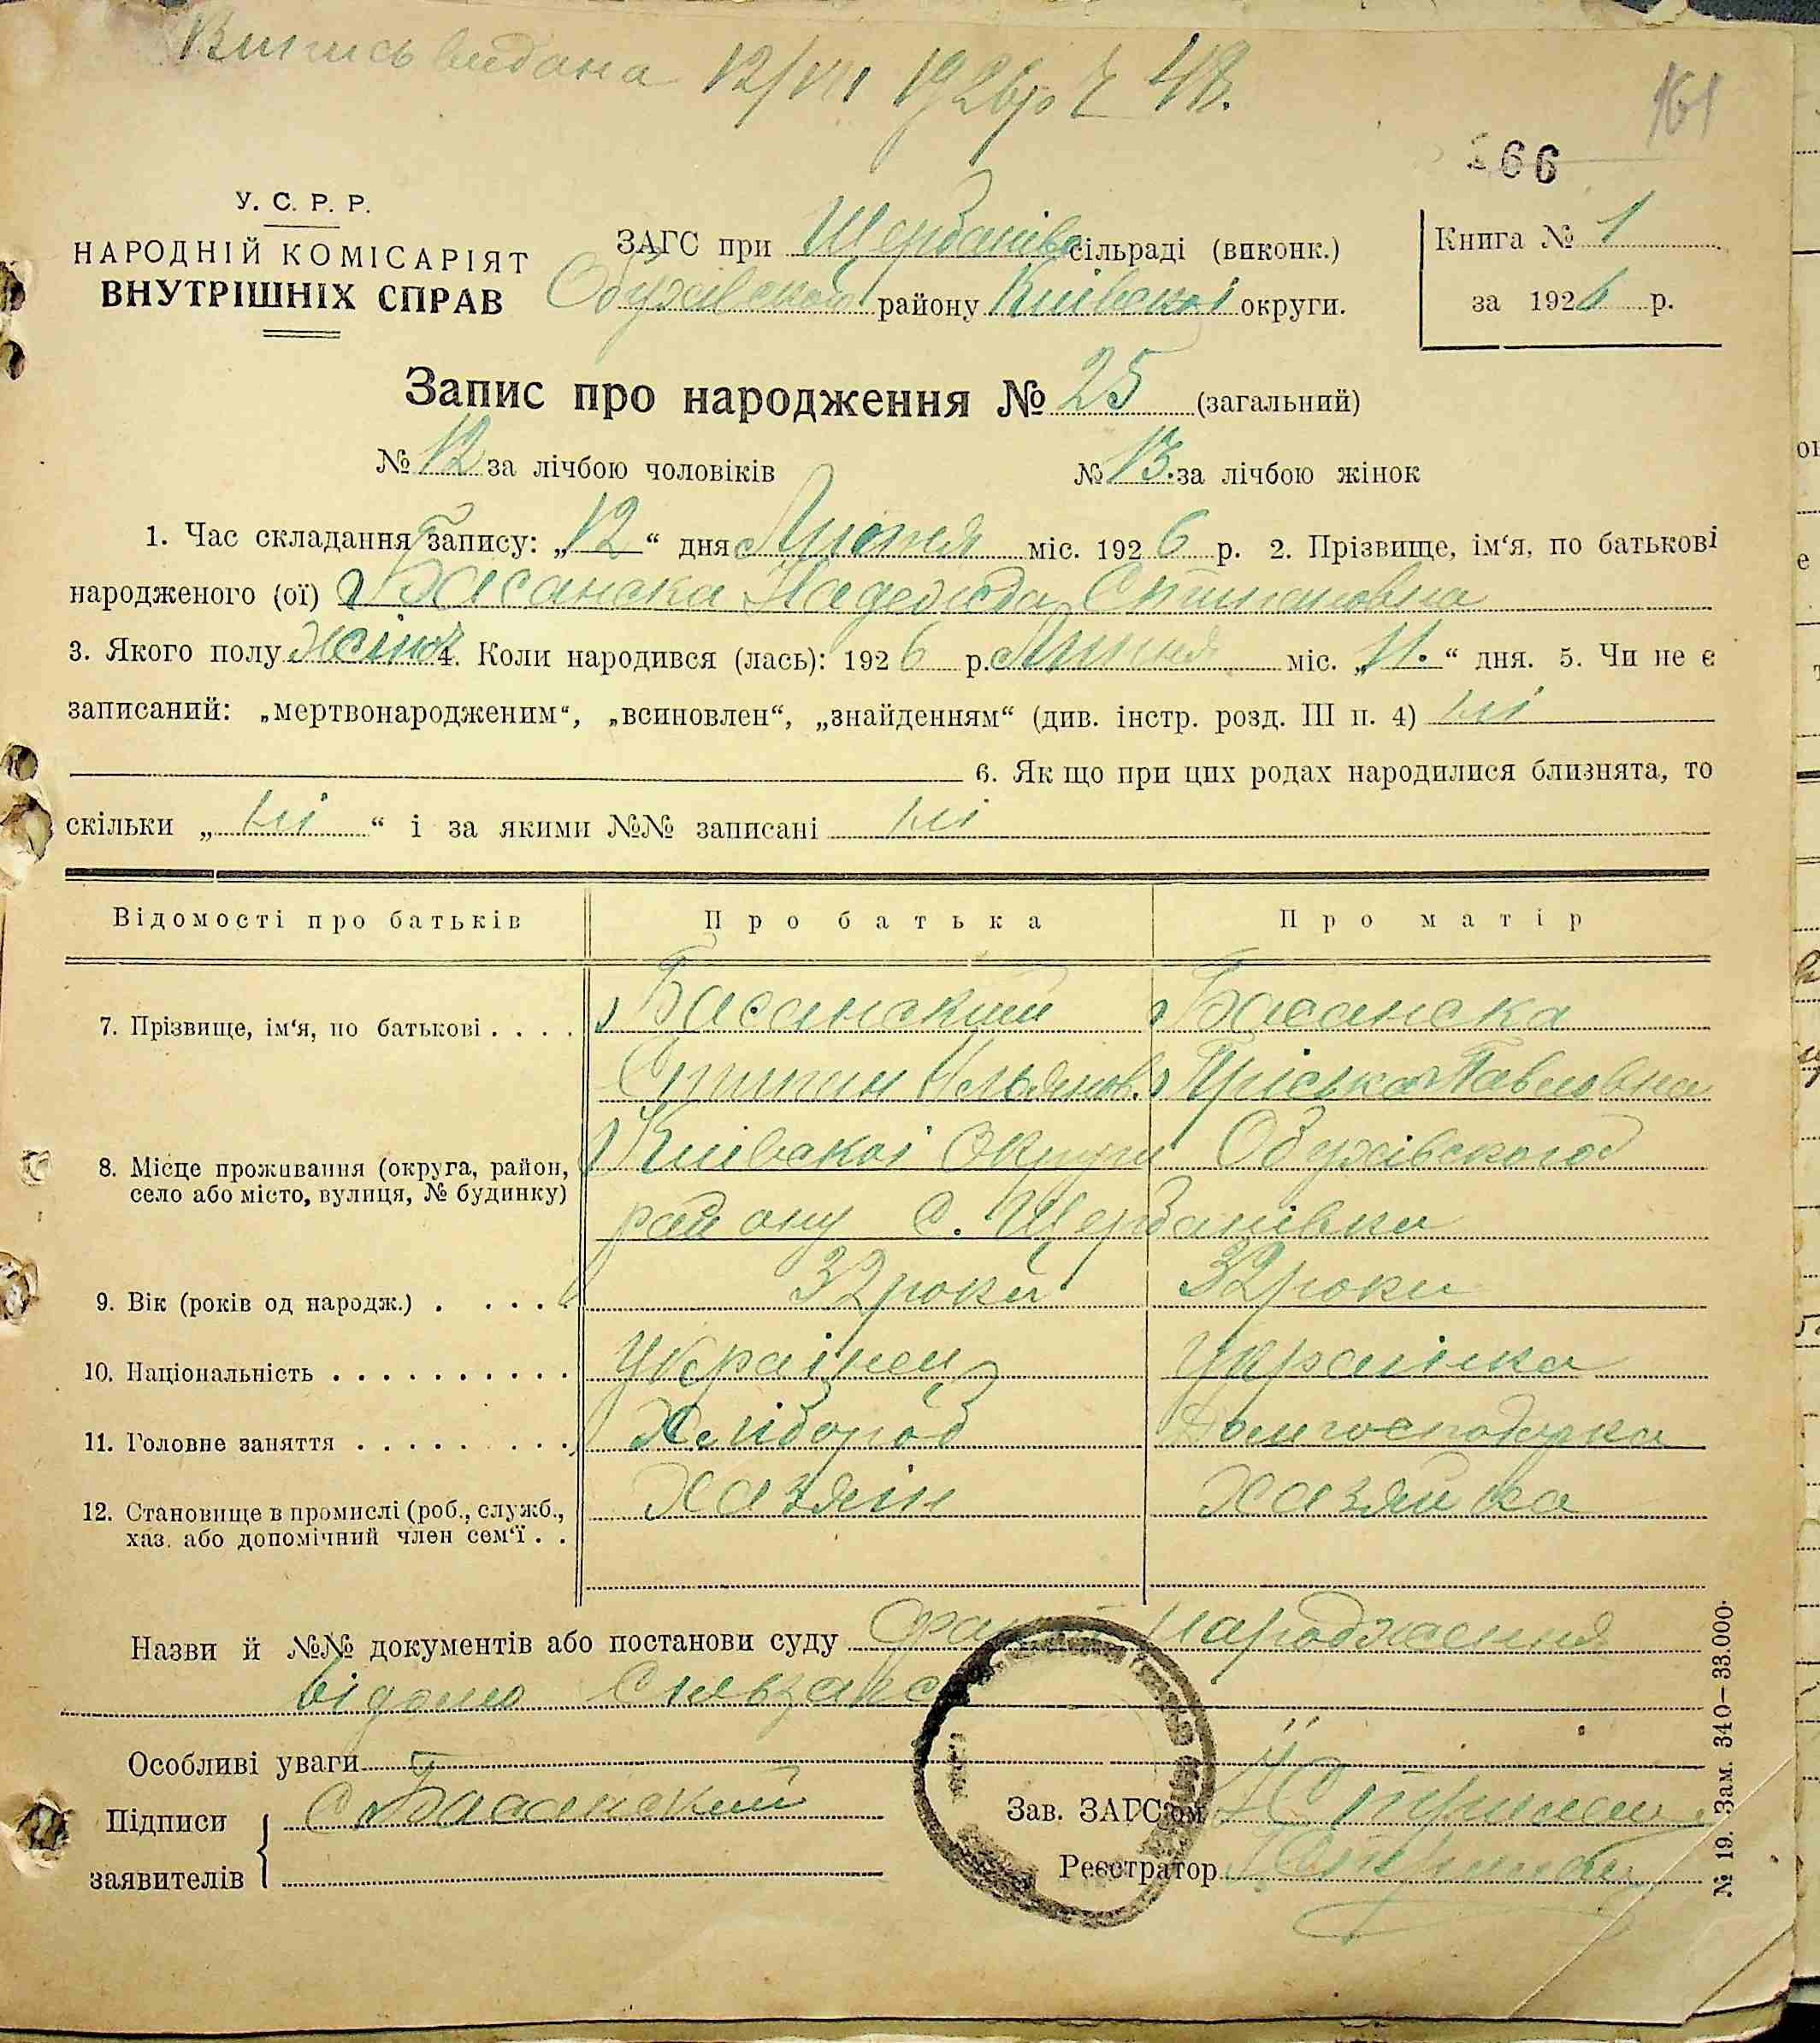 Випись видана 12/VII 1926 р Ч 48.
161
166
У. С. Р. Р.
НАРОДНІЙ КОМІСАРІЯТ
ВНУТРІШНІХ СПРАВ
ЗАГС при Щербанівс сільраді (виконк.)
Обухівського району Київської округи.
Книга № 1
за 1926 р.
Запис про народження № 25 (загальний)
№ 12 за лічбою чоловіків № 13. за лічбою жінок
1. Час складання запису: „12“ дня Липня міс. 1926 р. 2. Прізвище, ім‘я, по батькові
народженого (ої) Басанска Надежда Степановна
3. Якого полу жіноч 4. Коли народився (лась): 1926 р. Липня міс. „11.“ дня. 5. Чи не є
записаний: „мертвонародженим“, „всиновлен“, „знайденням“ (див. інстр. розд. III п. 4) ні
6. Як що при цих родах народилися близнята, то
скільки „ні“ і за якими №№ записані ні
Відомості про батьків Про батька Про матір
7. Прізвище, ім‘я, по батькові . . . . Басанский Басанска
Степан Ильянов. Пріська Павловна
8. Місце проживання (округа, район, Київскоі Округи Обухівского
село або місто, вулиця, № будинку) району С. Щербанівки
9. Вік (років од народж.) . . . . . 32 роки 32 роки
10. Національність . . . . . . . . . . Украінец Украінка
11. Головне заняття . . . . . . . . . Хлібороб Домгосподарка
12. Становище в промислі (роб., служб., Хазяін Хазяйка
хаз. або допомічний член сем‘ї . .
Назви й №№ документів або постанови суду Факт народження
відомо
Особливі уваги
Підписи С Басанский Зав. ЗАГС‘ом
заявителів Реєстратор
№ 19. Зам. 340–33.000.